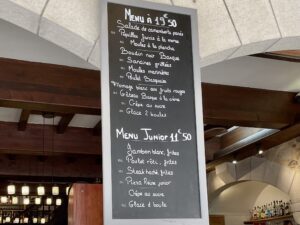 MENU À 19€50
Salade de camemberts panés
ou Papillon Jurcia à la menthe
ou Moules à la plancha
Boudin noir Basque
ou Sardines grillées
ou Moules marinière
ou Poulet Basquaise
Fromage blanc aux fruits rouges
ou Gâteau Basque à la crème
ou Crêpe au sucre
ou Glace 2 boules
MENU JUNIOR 11€50
Jambon blanc, frites
ou Poulet rôti, frites
ou Steak haché, frites
ou Pizza Reine junior
Crêpe au sucre
ou Glace 1 boule